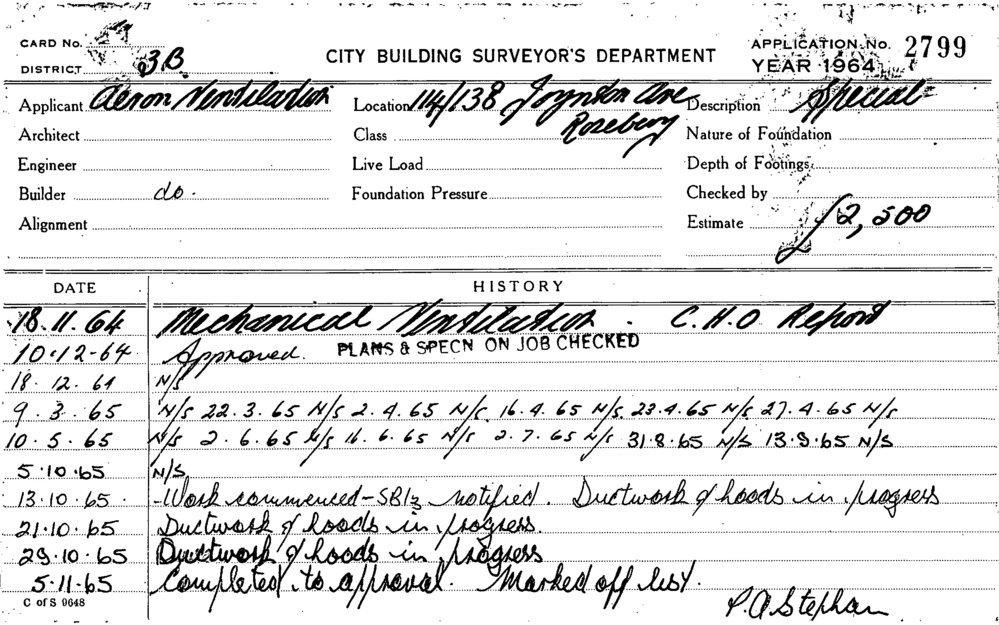 CARD No.
DISTRICT 3B.
CITY BUILDING SURVEYOR'S DEPARTMENT
APPLICATION No. 2799
YEAR 1964
Applicant Aeron Ventilation Location 114/138 Joynton Ave Rosebery Description Special
Architect Class Nature of Foundation
Engineer Live Load Depth of Footings
Builder do. Foundation Pressure Checked by
Alignment Estimate £2,500
DATE HISTORY
18.11.64 Mechanical Ventilation. C.H.O Report
10.12-64 Approved. PLANS & SPECN ON JOB CHECKED
18.12.64 N/S
9.3.65 N/S 22.3.65 N/S 2.4.65 N/S 16.4.65 N/S 23.4.65 N/S 27.4.65 N/S
10.5.65 N/S 2.6.65 N/S 16.6.65 N/S 2.7.65 N/S 31.8.65 N/S 13.9.65 N/S
5.10.65 N/S
13.10.65. -Work commenced-SB1/3 notified. Ductwork & hoods in progress
21.10.65 Ductwork & hoods in progress.
29.10.65 Ductwork & hoods in progress
5.11.65 Completed to approval. Marked off list.
C of S 9648
P.A Stephan